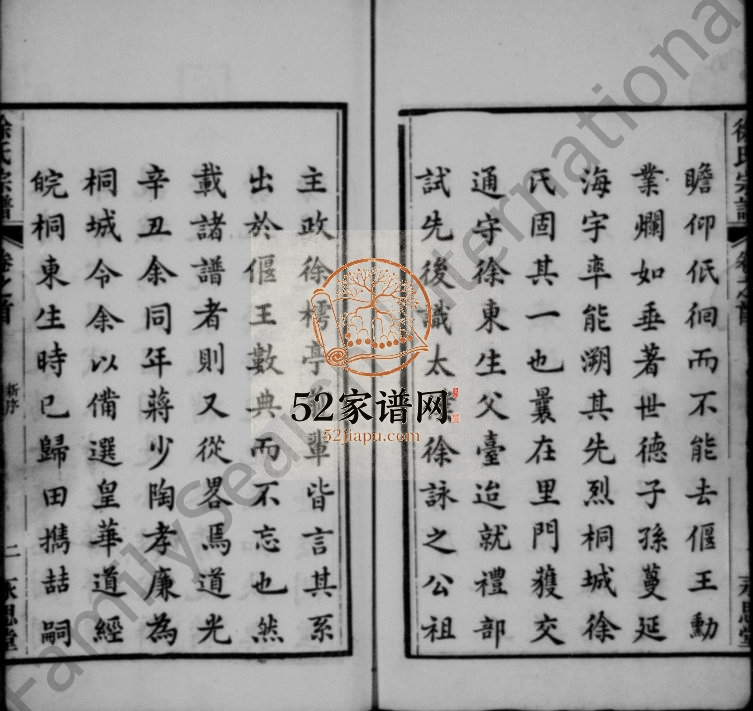 瞻仰伿徊而不能去偃王勳
業爛如垂著世德子孫蔓延
海宇率能溯其先烈桐城徐
氏固其一也曩在里門獲交
通守徐東生父臺迨就禮部
試先後識太徐詠之公祖
主政徐樗亭輩皆言其系
出於偃王數典而不忘也然
載諸譜者則又從畧焉道光
辛丑余同年蔣少陶孝廉為
桐城令余以備選皇華道經
皖桐東生時已歸田攜喆嗣
徐氏宗譜
卷之首
新序
二
永思堂
52家谱网
52jiapu.com
FamilySearch International